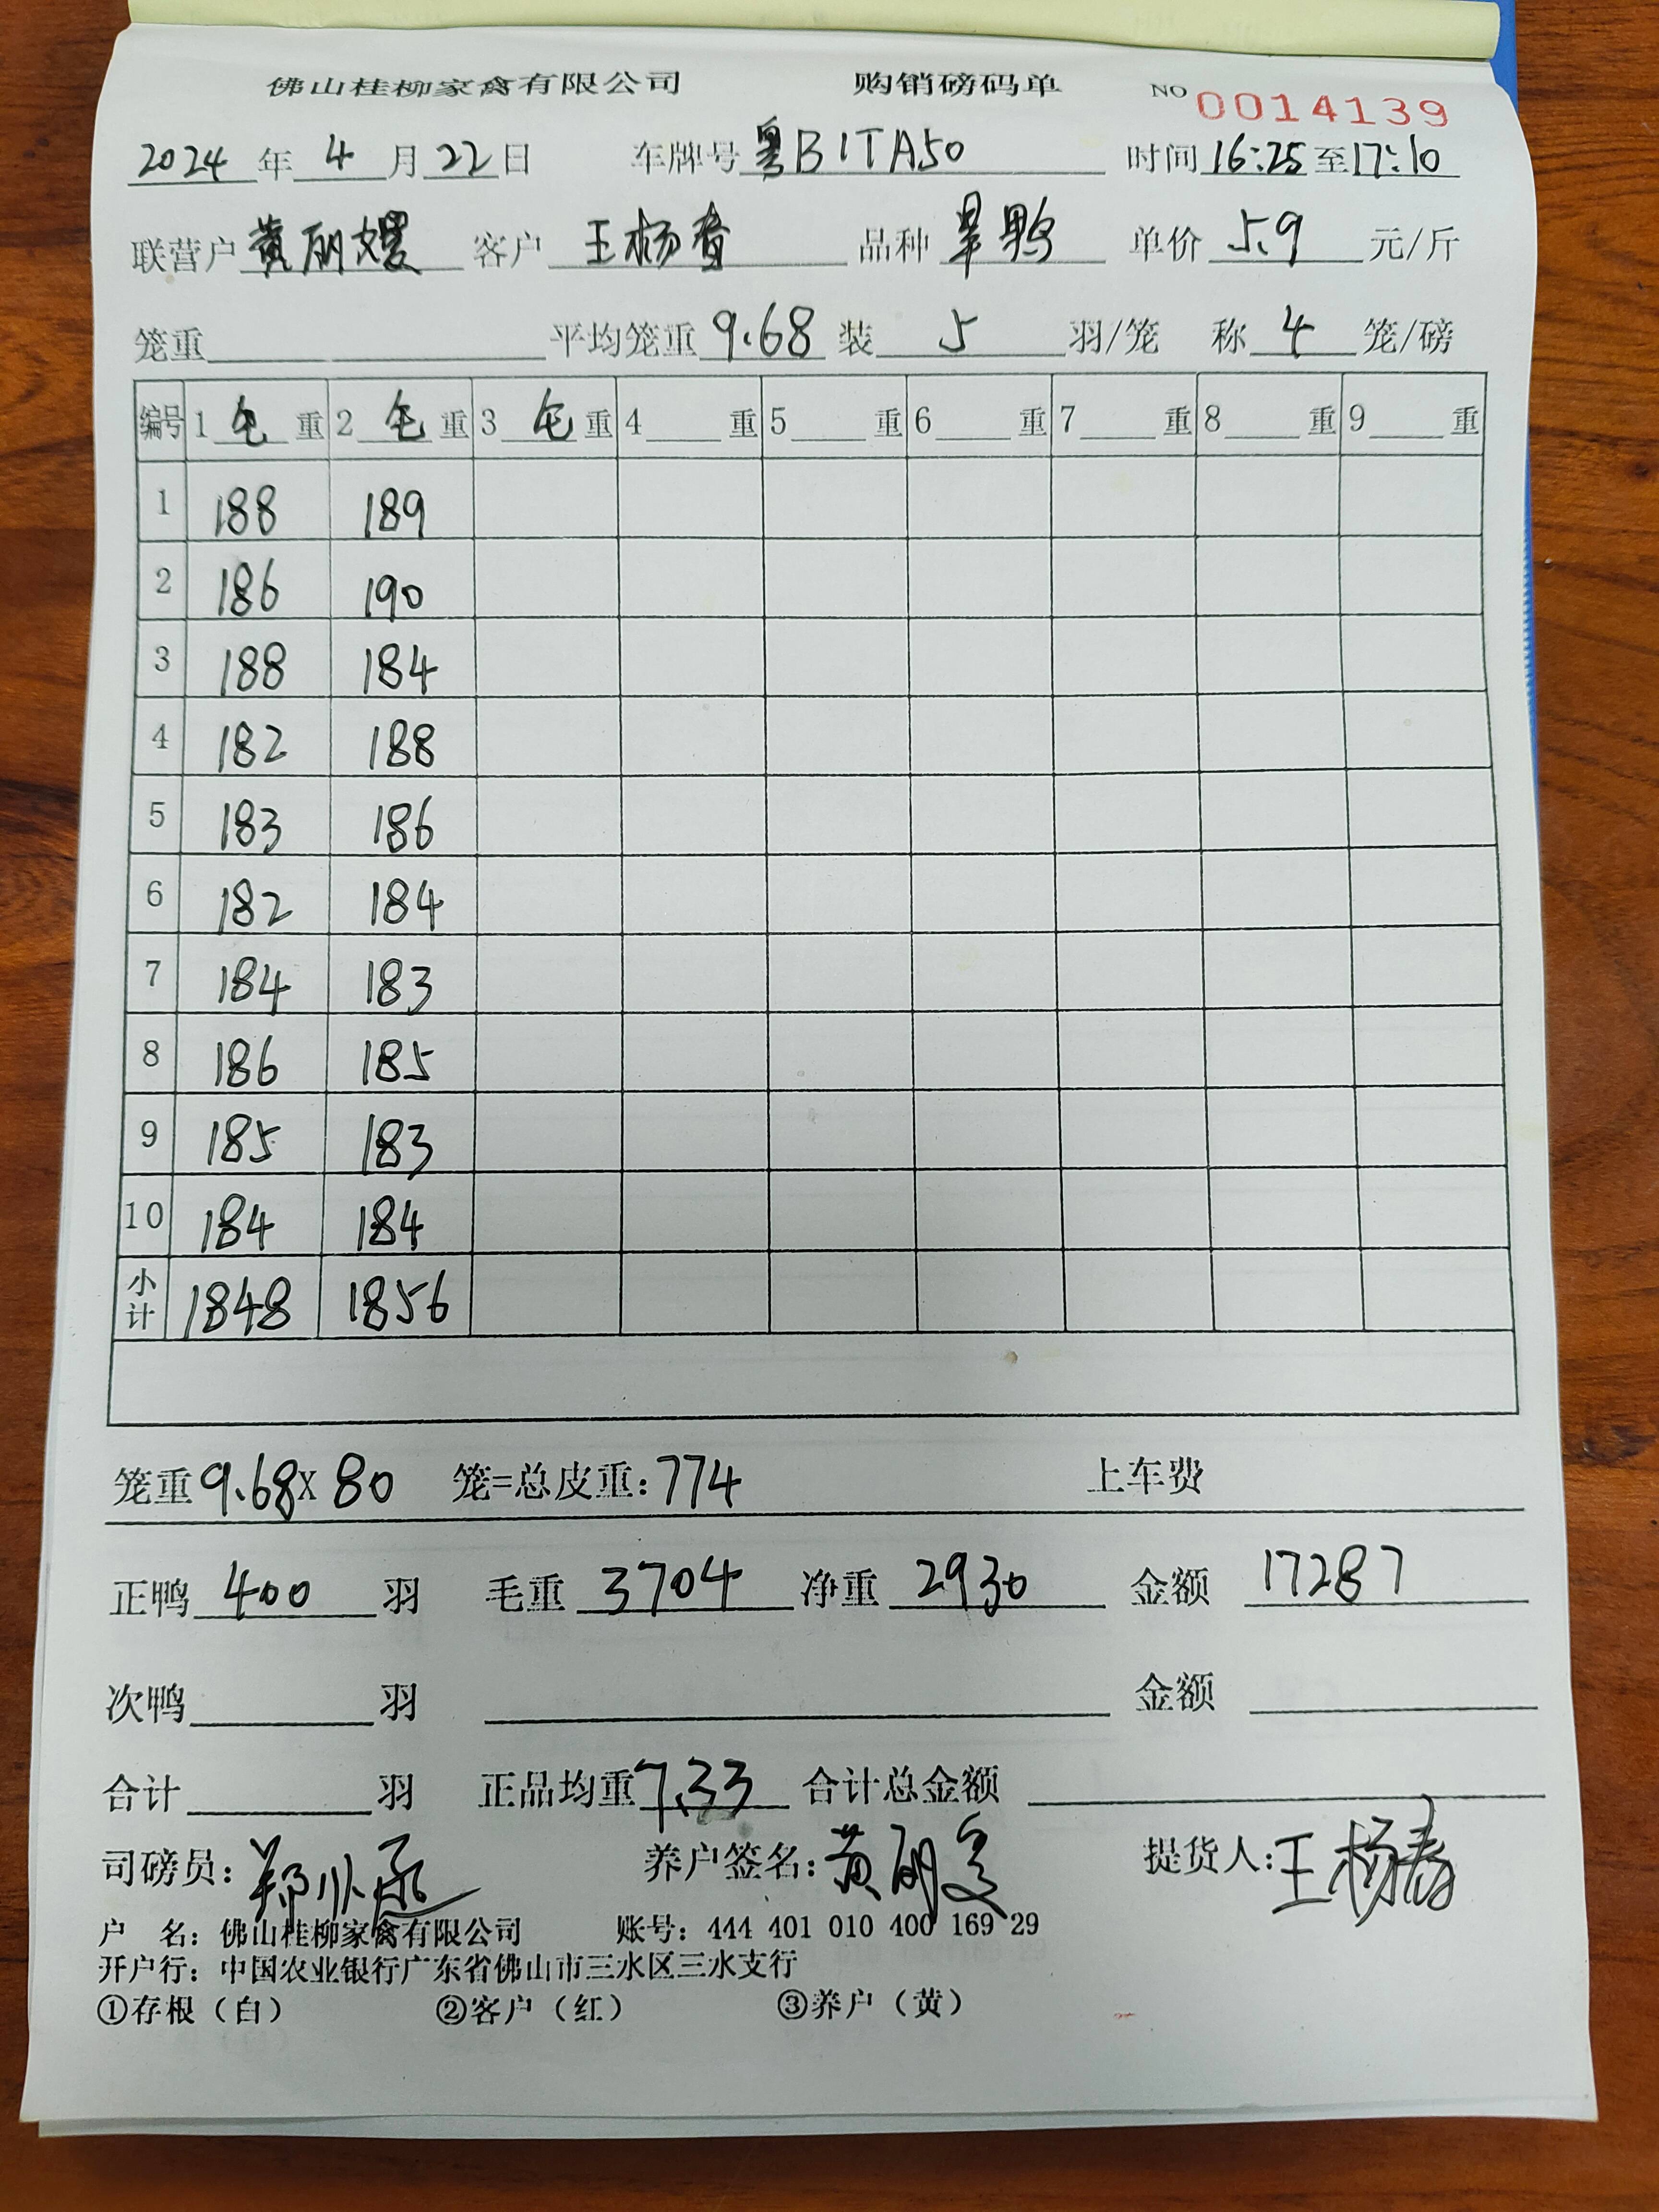 佛山桂柳家禽有限公司 购销磅码单 NO 0014139
2024年4月22日 车牌号粤B1TA50 时间16:25至17:10
联营户黄丽嫒 客户王杨春 品种旱鸭 单价5.9元/斤
笼重 平均笼重9.68装5羽/笼 称4笼/磅
编号 1毛重 2毛重 3毛重 4重 5重 6重 7重 8重 9重
1 188 189
2 186 190
3 188 184
4 182 188
5 183 186
6 182 184
7 184 183
8 186 185
9 185 183
10 184 184
小计 1848 1856
笼重9.68X80 笼=总皮重:774 上车费
正鸭400羽 毛重3704 净重2930 金额17287
次鸭羽 金额
合计羽 正品均重7.33 合计总金额
司磅员:郑 养户签名:黄 提货人:王杨春
户 名:佛山桂柳家禽有限公司 账号:444 401 010 400 169 29
开户行:中国农业银行广东省佛山市三水区三水支行
①存根(白) ②客户(红) ③养户(黄)